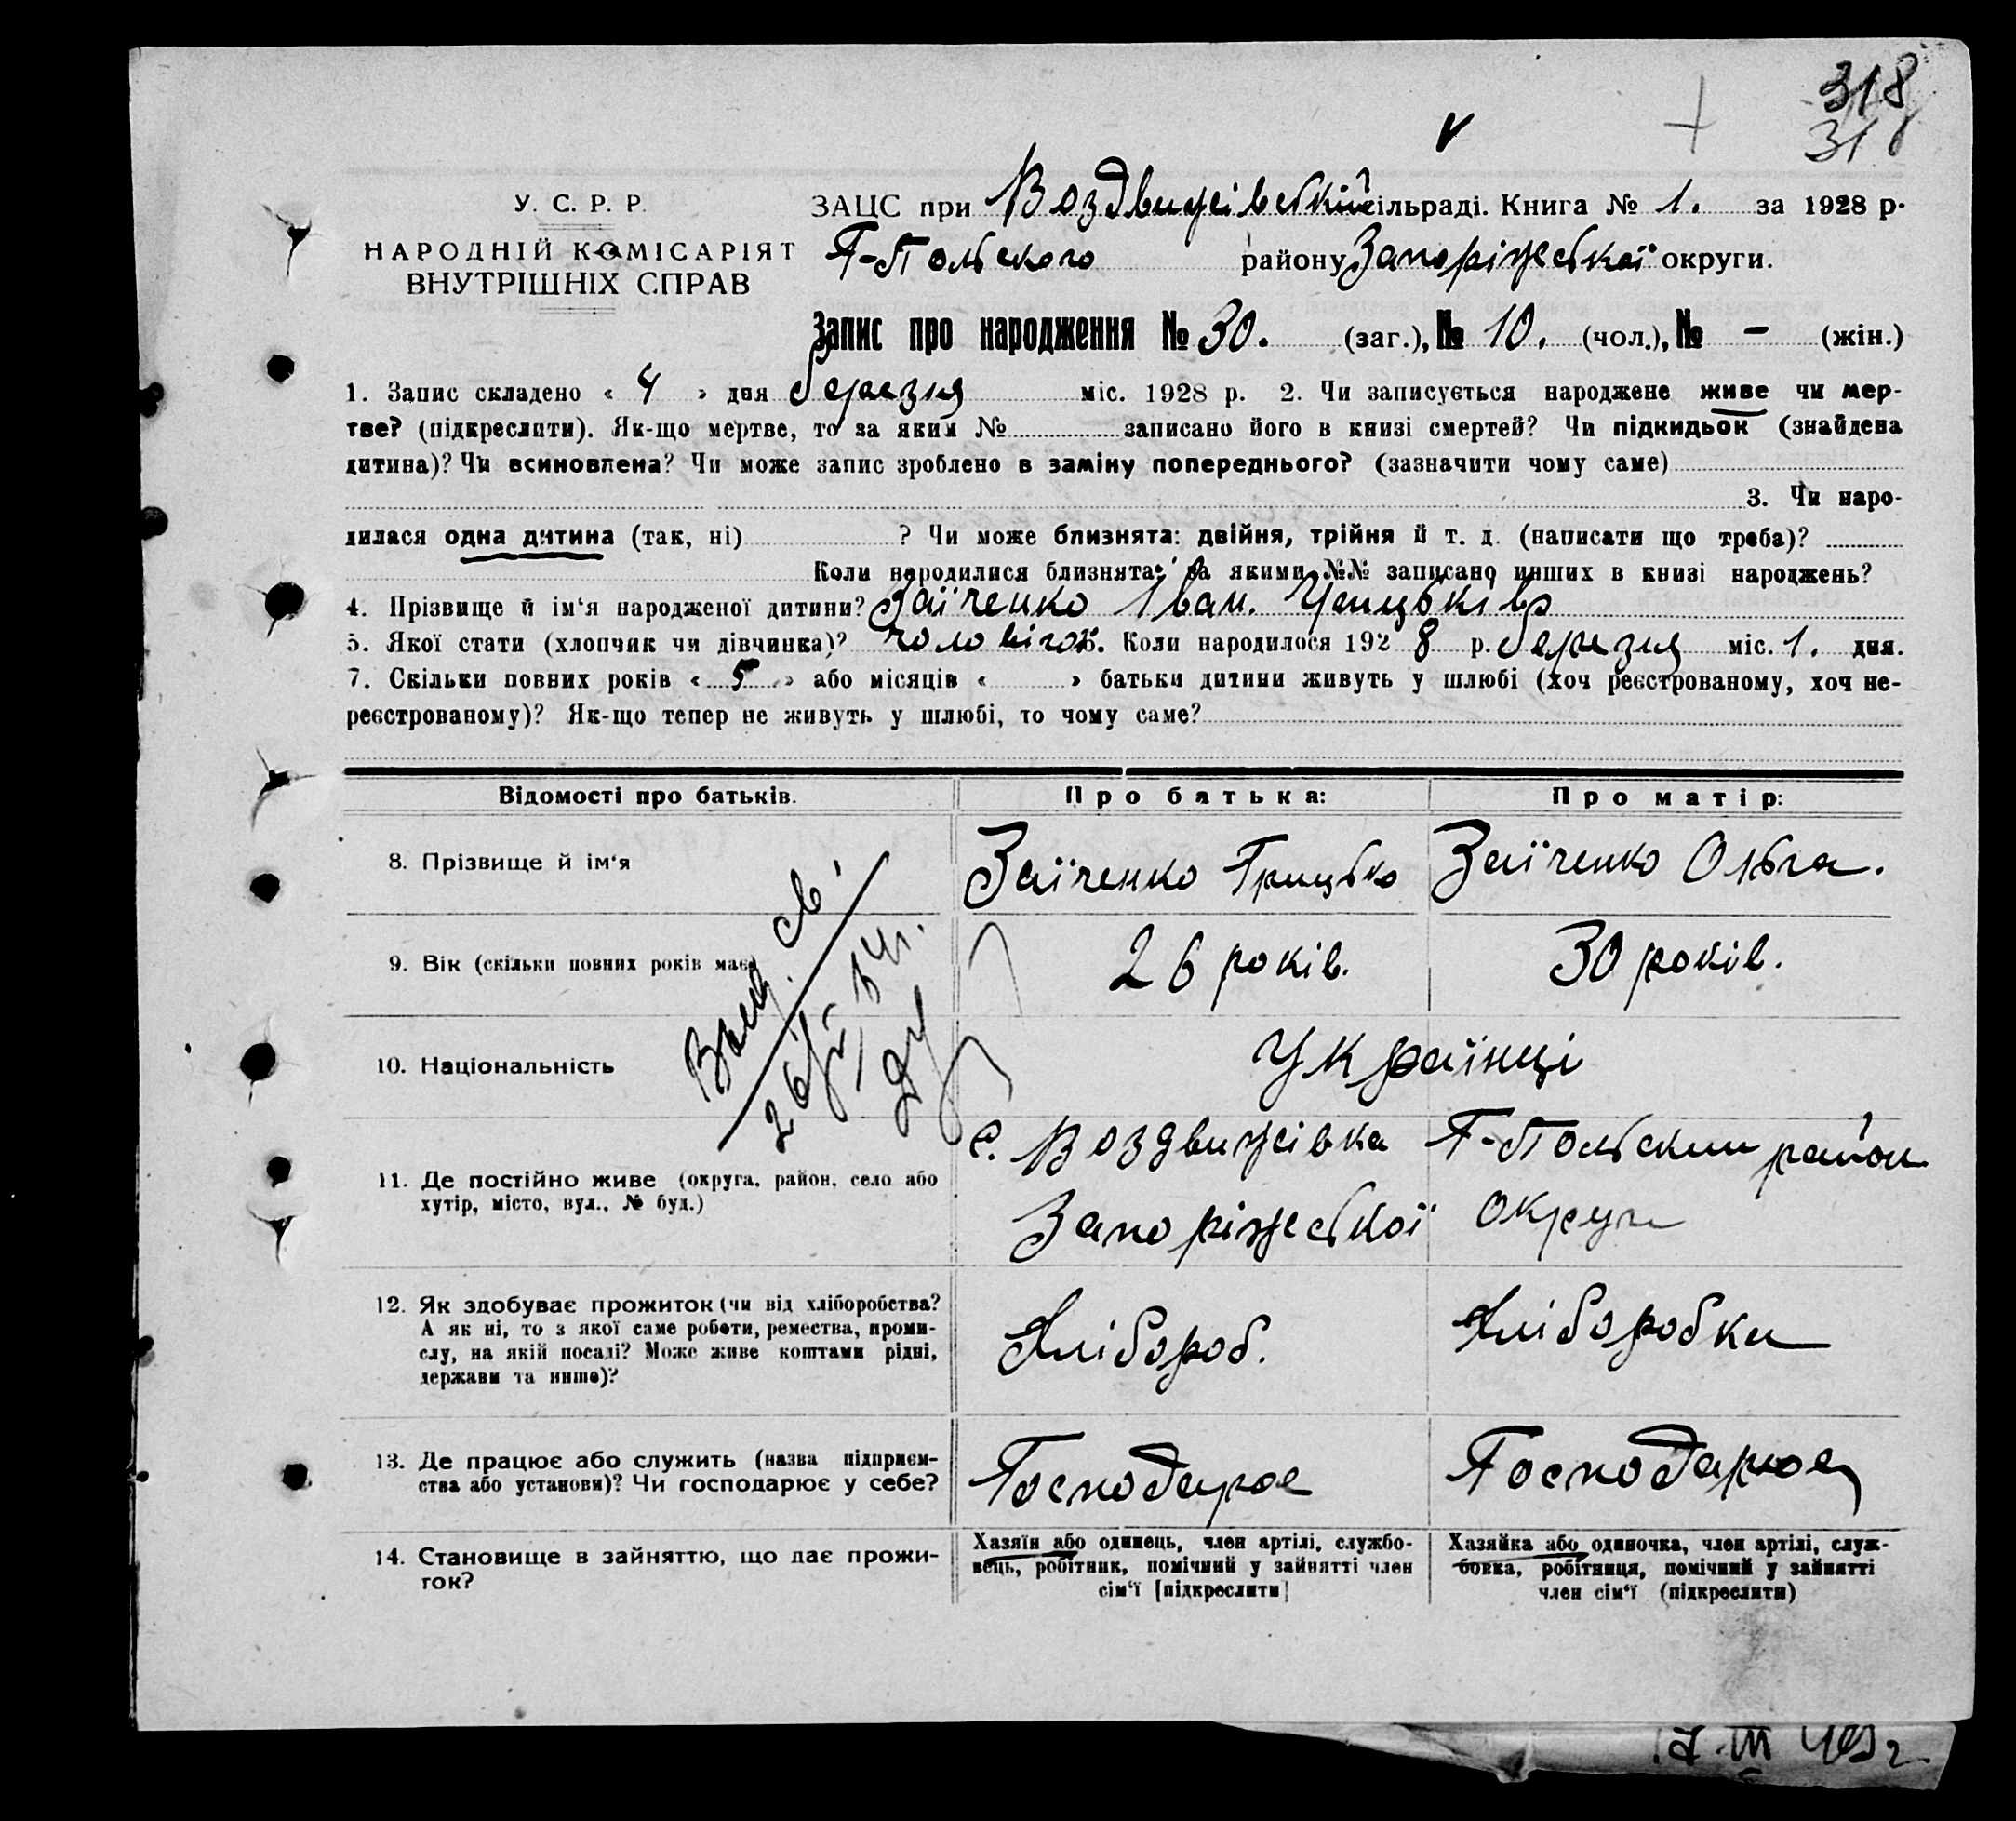 318
31
V
У. С. Р. Р.
НАРОДНІЙ КОМІСАРІЯТ
ВНУТРІШНІХ СПРАВ
ЗАЦС при Воздвижівській сільраді. Книга № 1. за 1928 р.
Г-Польского району Запоріжської округи.
Запис про народження № 30. (заг.), № 10. (чол.), № - (жін.)
1. Запис складено « 4 » дня березня міс. 1928 р. 2. Чи записується народжене живе чи мер-
тве? (підкреслити). Як-що мертве, то за яким № записано його в книзі смертей? Чи підкидьок (знайдена
дитина)? Чи всиновлена? Чи може запис зроблено в заміну попереднього? (зазначити чому саме)
3. Чи наро-
дилася одна дитина (так, ні) ? Чи може близнята: двійня, трійня й т. д. (написати що треба)?
Коли народилися близнята, за якими №№ записано инших в книзі народжень?
4. Прізвище й ім‘я народженої дитини? Заїченко Іван.
5. Якої стати (хлопчик чи дівчинка)? чоловічої. Коли народилося 192 8 р. березня міс. 1. дня.
7. Скільки повних років « 5 » або місяців « » батьки дитини живуть у шлюбі (хоч реєстрованому, хоч не-
реєстрованому)? Як-що тепер не живуть у шлюбі, то чому саме?
Відомості про батьків. Про батька: Про матір:
8. Прізвище й ім‘я Заїченко Грицько Заїченко Ольга.
9. Вік (скільки повних років має) 26 років. 30 років.
10. Національність Українці
11. Де постійно живе (округа, район, село або
хутір, місто, вул., № буд.)
с. Воздвижівка Г-Польский район
Запоріжської округи
12. Як здобуває прожиток (чи від хліборобства?
А як ні, то з якої саме роботи, ремества, проми-
слу, на якій посаді? Може живе коштами рідні,
держави та инше)?
Хлібороб. Хліборобка
13. Де працює або служить (назва підприєм-
ства або установи)? Чи господарює у себе?
Господарює Господарює
14. Становище в зайняттю, що дає прожи-
ток?
Хазяїн або одинець, член артілі, службо-
вець, робітник, помічний у зайнятті член
сім‘ї [підкреслити]
Хазяйка або одиночка, член артілі, служ-
бовка, робітниця, помічний у зайнятті
член сім‘ї (підкреслити)